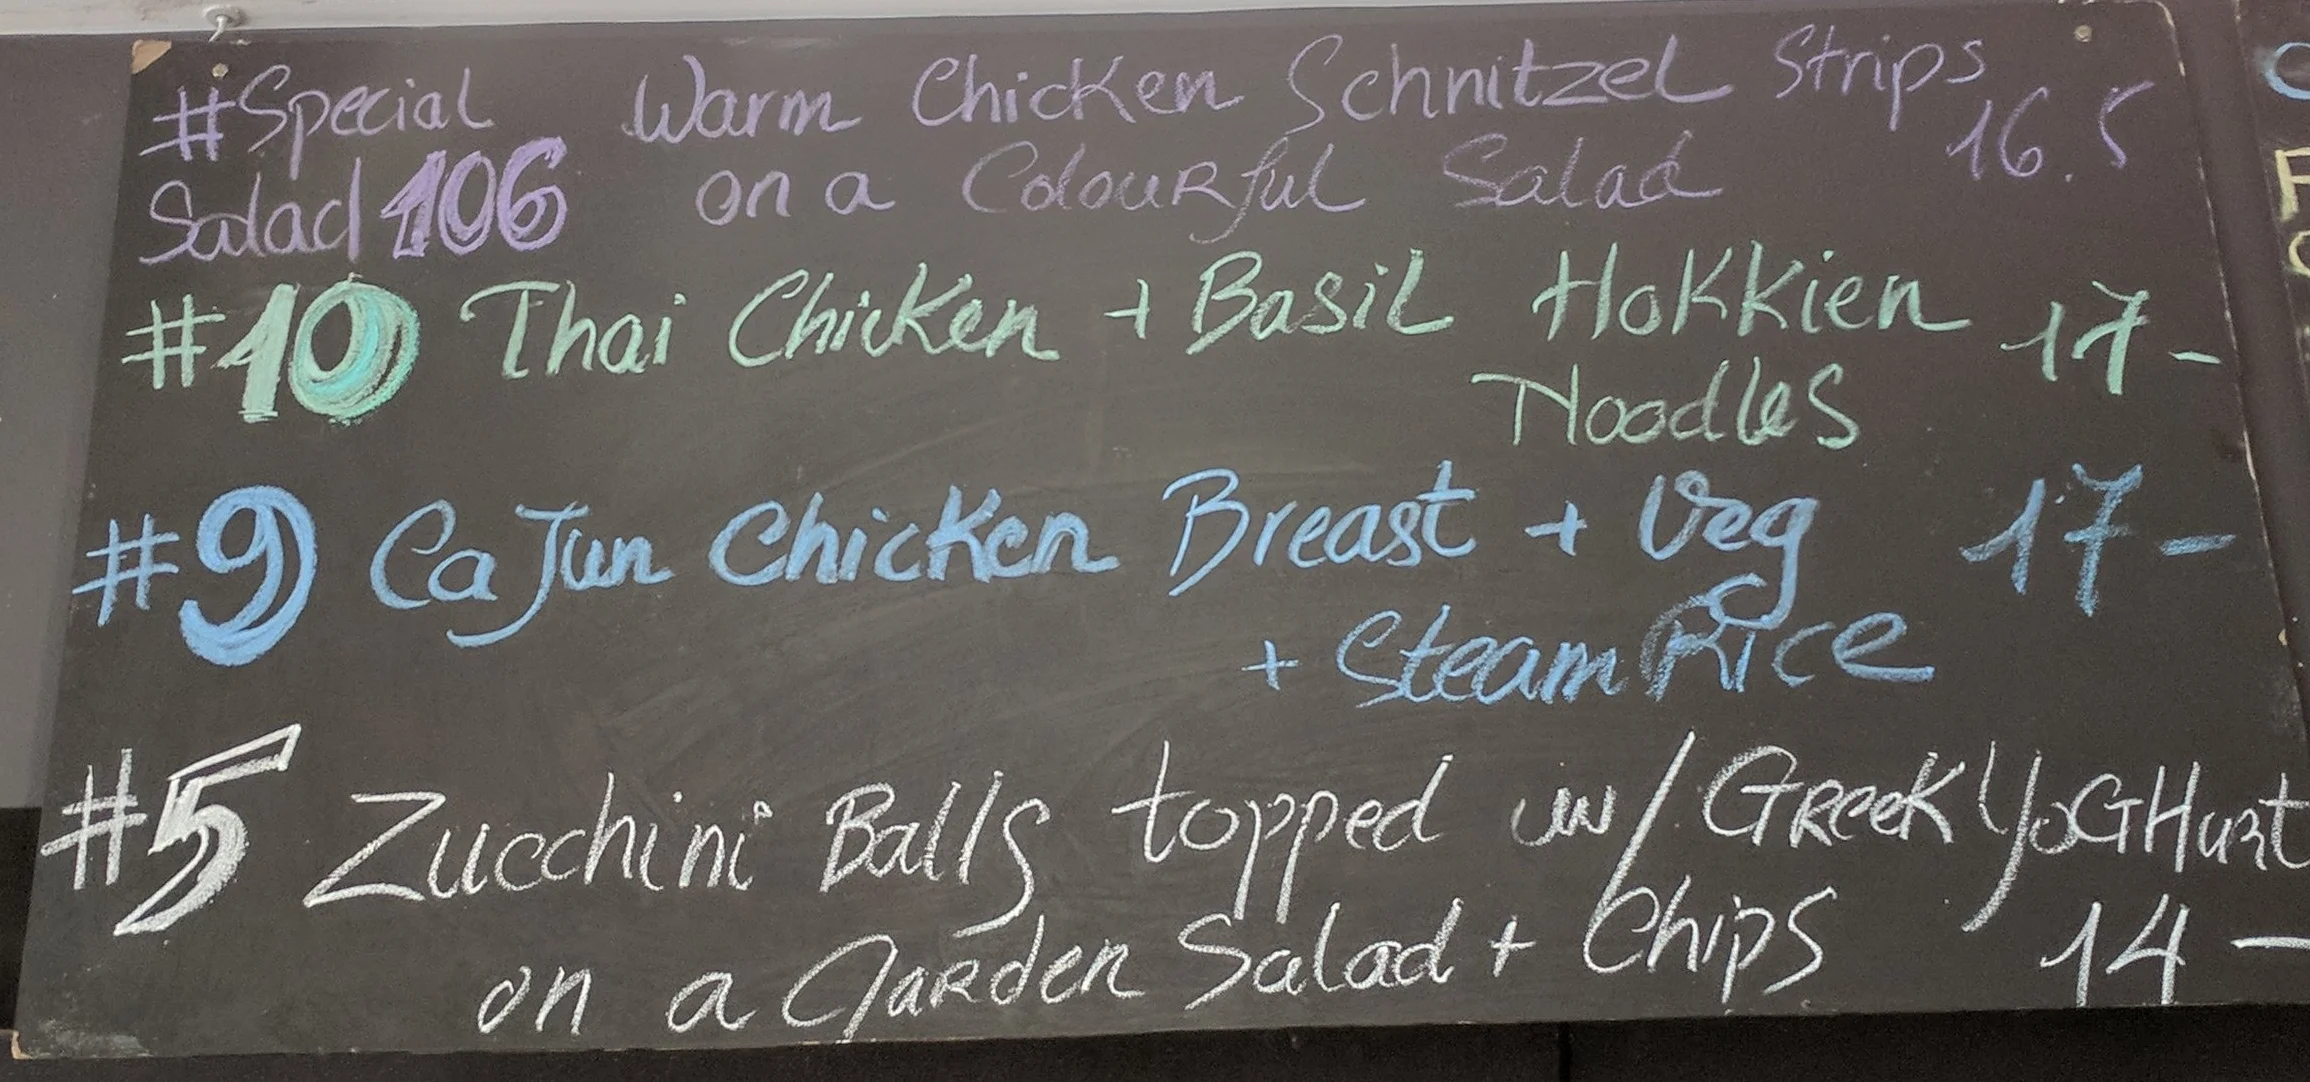 #Special Warm Chicken Schnitzel Strips
Salad 106 on a Colourful Salad 16.5
#10 Thai Chicken + Basil Hokkien 17-
Noodles
#9 Cajun Chicken Breast + Veg 17-
+ Steam Rice
#5 Zucchini Balls topped w/ Greek YoGHurt
on a Garden Salad + Chips 14-